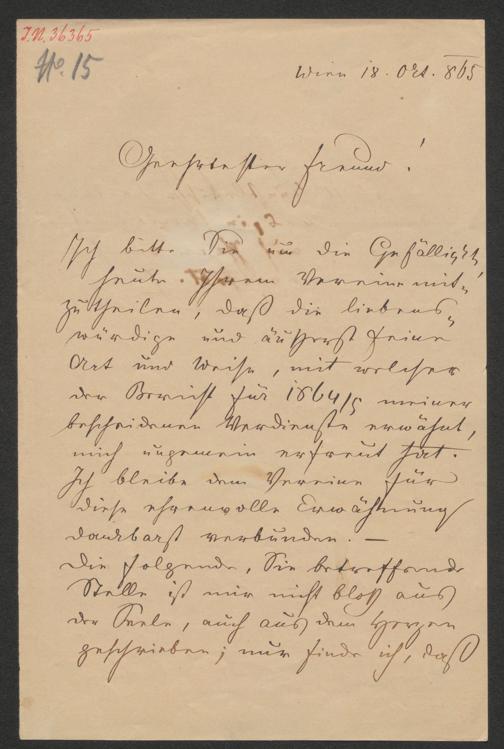 I.N. 36365
No. 15
Wien 18. Okt. 865
Geehrtester Freund!
Ich bitte Sie um die Gefälligkeit
heute Ihrem Vereine mit„
zutheilen, daß die liebens„
würdige und äußerst feine
Art und Weise, mit welcher
der Bericht für 1864/5 meiner
bescheidenen Verdienste erwähnt,
mich ungemein erfreut hat.
Ich bleibe dem Vereine für
diese ehrenvolle Erwähnung
dankbarst verbunden. —
Die folgende, Sie betreffende
Stelle ist mir nicht bloß aus
der Seele, auch aus dem Herzen
geschrieben; nur finde ich, daß